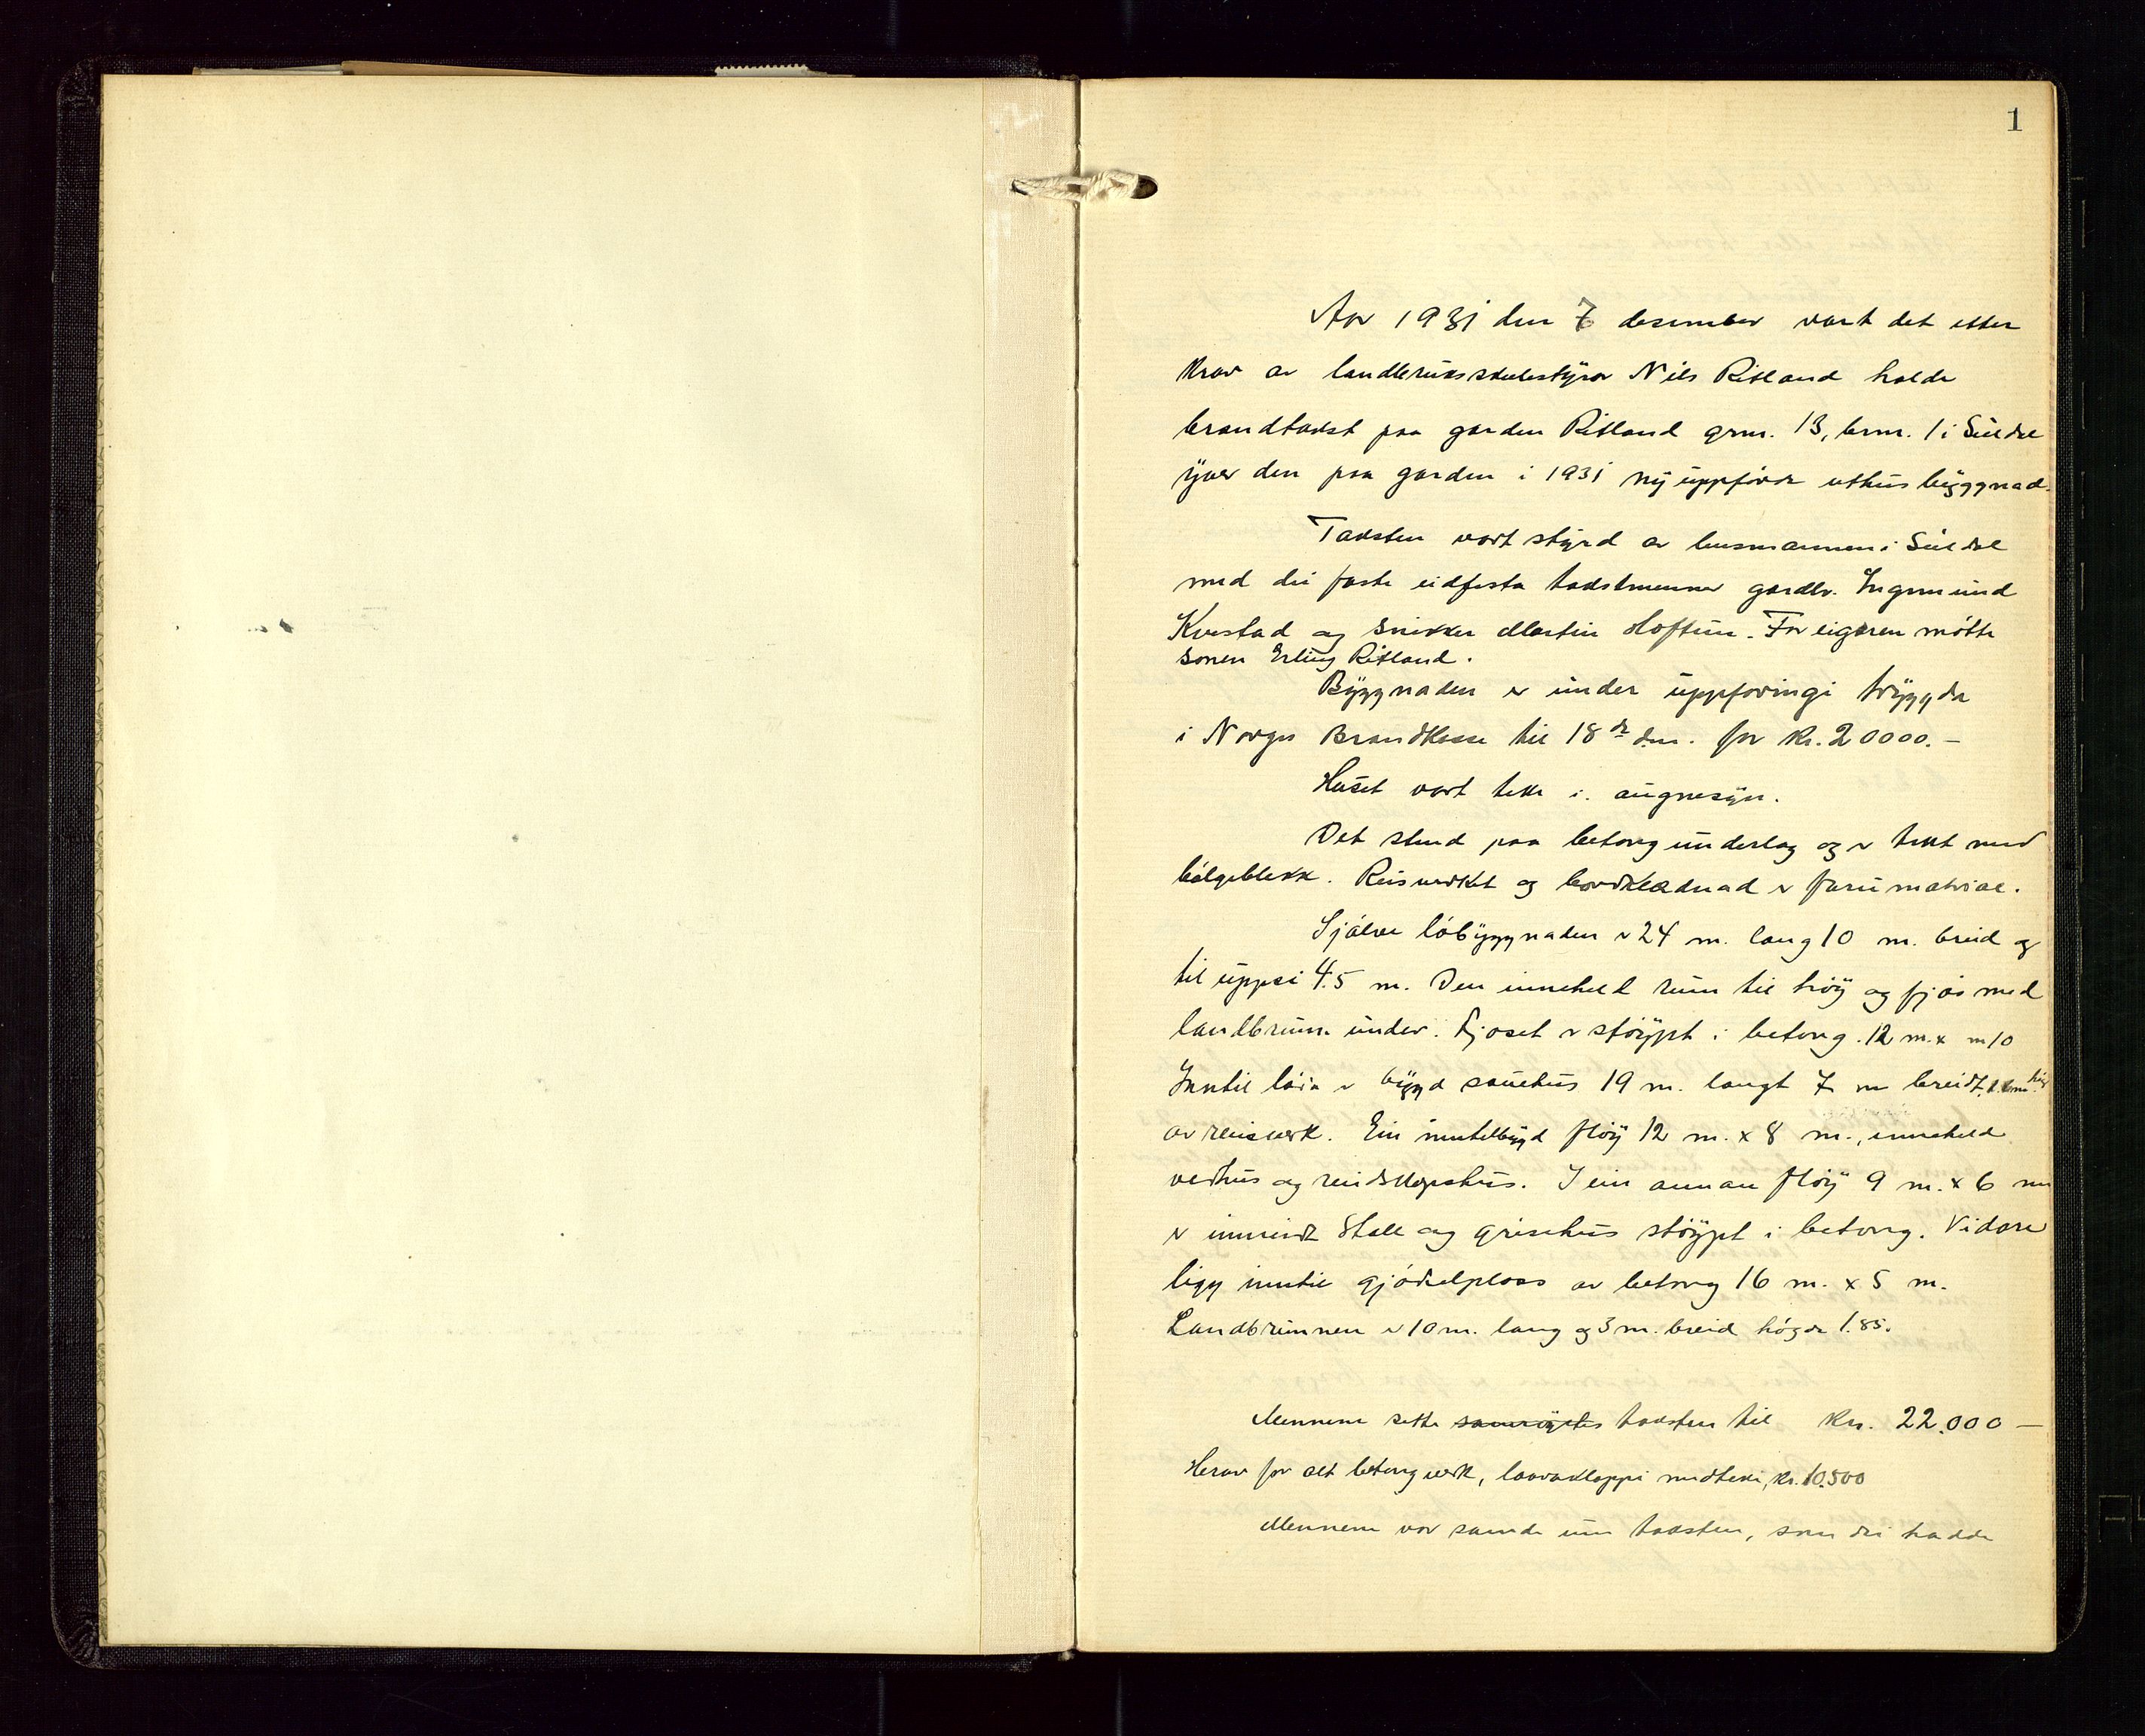 1
Aar 1931 den 7 desember vart det etter
krav av landbruksskulestyrar Nils Ritland halde
brandtakst paa garden Ritland grnr. 13, brnr. 1 i Suldal
yver den paa garden i 1931 ny uppförde uthusbyggnad.
Taksten vart styrd av lensmannen i Suldal
med dei faste eidfesta takstmenner gardbr. Ingemund
Kvestad og snikker Martin Hoftun. For eigaren mötte
sonen Erling Ritland.
Byggnaden er under uppforingi trygda
i Norges Brandkasse til 18de ds.m. for kr. 20000.-
Huset vart teke i augnesyn.
Det stend paa betongunderlag og er tekt med
bölgeblekk. Reisverket og bordklædnad er furumatriae.
Sjölve löbyggnaden er 24 m. lang 10 m. breid og
til uppsi 4.5 m. Den inneheld rum til höy og fjös med
landbrunn under. Fjoset er stöypt i betong. 12 m. x m 10
Inntil löa er bygd sauehus 19 m. langt 7 m breidt, högt
av reisverk. Ein inntilbygd flöy 12 m. x 8 m., inneheld
vedhus og reidskapshus. I ein annan flöy 9 m. x 6 m
er innreidt stall og grisehus stöypt i betong. Vidare
ligg inntil gjödselplass av betong 16 m. x 5 m.
Landbrunnen er 10 m. lang og 3 m. breid högde 1.85.
Mennene sette samröystes taksten til kr. 22.000 —
Herav for alt betongverk, laavakloppi medteki, kr. 10.500
Mennene var samde um taksten, som dei hadde